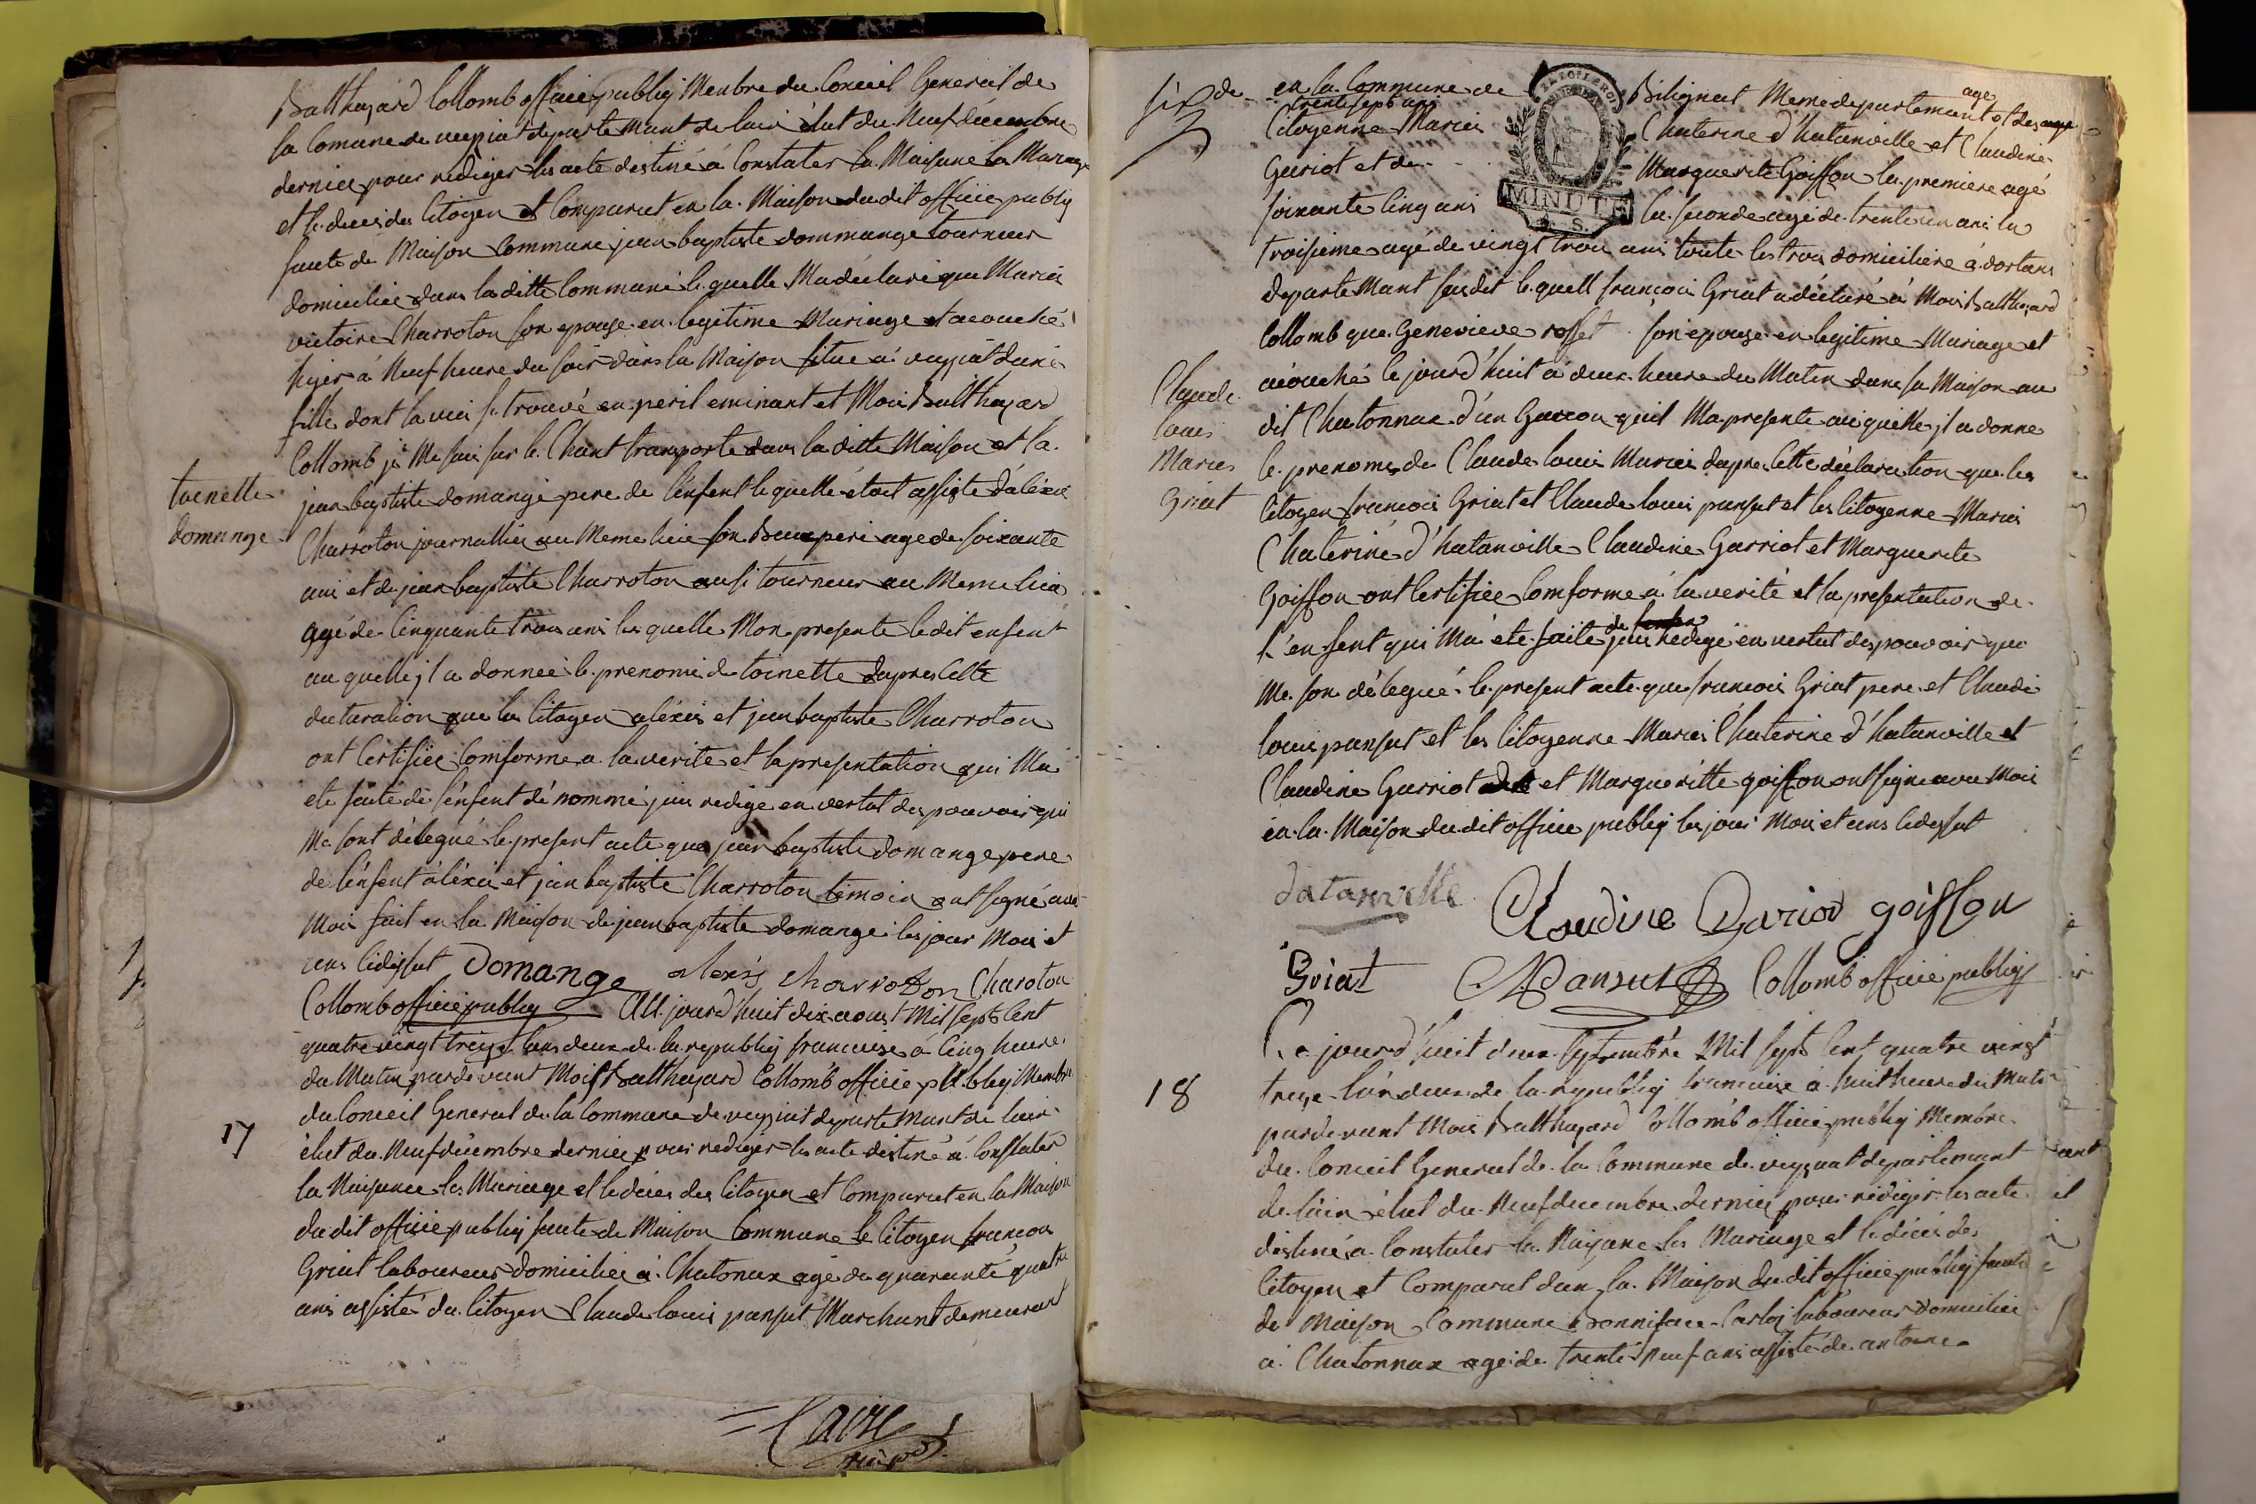 Balthazard Collomb officie publiq Menbre du Conceil General de
la Comune de veyziat departe Mant de lain élut du Neuf décembre
dernier pour rediger les acte destiné á Constater la Naisance la Mariage
et le deces des Citoyen et Comparut en la Maison du dit officie publiq
faute de Maison Commune jean baptiste dommange tourneur
domiciliée dans la ditte Commune le quelle Ma déclaré que Marie
victoire Charroton son epouse en legitime Mariage et acouché
hyer á Neuf heure du soir dans la Maison situe a veyziat dune
fille dont la vie se trouvé en peril eminant et Moi Balthazard
Collomb je Me suis sur le Chant transporte dans la ditte Maison et la
toenette
domange
jean baptiste domange pere de lénfent le quelle étoit assiste dáléxié
Charroton journallier au Meme lieu son Beaupere age de soixante
ans et de jean baptiste Charroton ausi tourneur au Meme lieu
agé de Cinquante trois ans les quelle Mon presente le dit enfent
au quelle jl a donnée le prenome de toinette dapres Cette
declaration que les Citoyen aléxis et jean baptiste Charroton
ont Certifiée Comforme a la verite et la presentation qui Ma
ete faite de lénfent dénommé jai redige en vertut des pouvoir qui
Me sont délegué le present acte que jean baptiste domange pere
de lénfent áléxis et jean baptiste Charroton témoin ont signé avec
Moi fait en la Maison de jean baptiste domange les jour Moi et
ans Cidessut Domange alexis charroton Charoton
Collomb officie publiq Au jourd'huit dix aout Mil sept Cent
quatre vingt treize lans deux de la republiq francaise á Cinq heure
du Matin pardevant Moi Balthazard Collomb officie publiq Membre
du Conceil General de la Commune de veyziat departe Mant de lain
17
élut du Neuf décembre dernier pour rediger les acte destiné á Constater
la Naisance les Mariage et le déces des Citoyen et Comparut en la Maison
du dit officie publiq faute de Maison Commune le Citoyen francois
Griat laboureur domiciliée á Chatonax agé de quarante quatre
ans assisté du Citoyen Claude louis pansut Marchant demeurant
six de
en la Commune de Bélignat Meme departemant et des age
trente sept ans
Citoyenne Marie Chaterine d'hatanville et Claudine
Gariot et de Marguerite Goiffon la premiere agé
MINUTE
soixante Cinq ans la seconde agé de trente un ans la
troisieme agé de vingt trois ans toute les trois domiciliere á dortans
departe Mant susdit le quell francois Griat a déclaré á Moi Balthazard
Collomb que Genevieve rosset son epouse en legitime Mariage et
acouché le jourd'huit á deux heure du Matin dans sa Maison au
Claude
louis
Marie
Griat
dit Chatonnax d'un Garcon quil Ma presente au quelle jl a donne
le prenoms de Claude louis Marie dapres Cette déclaration que les
Citoyen francois Griat et Claude louis pansut et les Citoyenne Marie
Chaterine d'hatanville Claudine Garriot et Marguerite
Goiffon ont Certifiée Comforme á la verité et la presentation de
l'énfent qui Ma été faite jai rédigé en vertut des pouvoir qui
Me son délegué le present acte que francois Griat pere et Claude
louis pansut et les Citoyenne Marie Chaterine d'hatanville et
Claudine Garriot et Marguerîtte goiffon ont signe avec Moi
en la Maison du dit officie publiq les jour Moi et ans Cidessut
datanville Claudine Gariod goiffon
Griat Pansut Collomb officie publiq
Ce jourd'huit deux septembre Mil sept Cent quatre vingt
18
treize lán deux de la republiq francaise á huit heure du Mati
pardevant Moi Balthazard Collomb officie publiq Membre
du Conceil General de la Commune de veyziat departemant
de láin élut du Neuf decembre dernier pour rédiger les acte
destiné a Constater la Naisance les Mariage et le décés des
Citoyen et Comparut dans la Maison du dit officie publiq faute
de Maison Commune Bonniface Carloz laboureur domiciliée
á Chatonnax agé de trente Neuf ans assisté de antoine